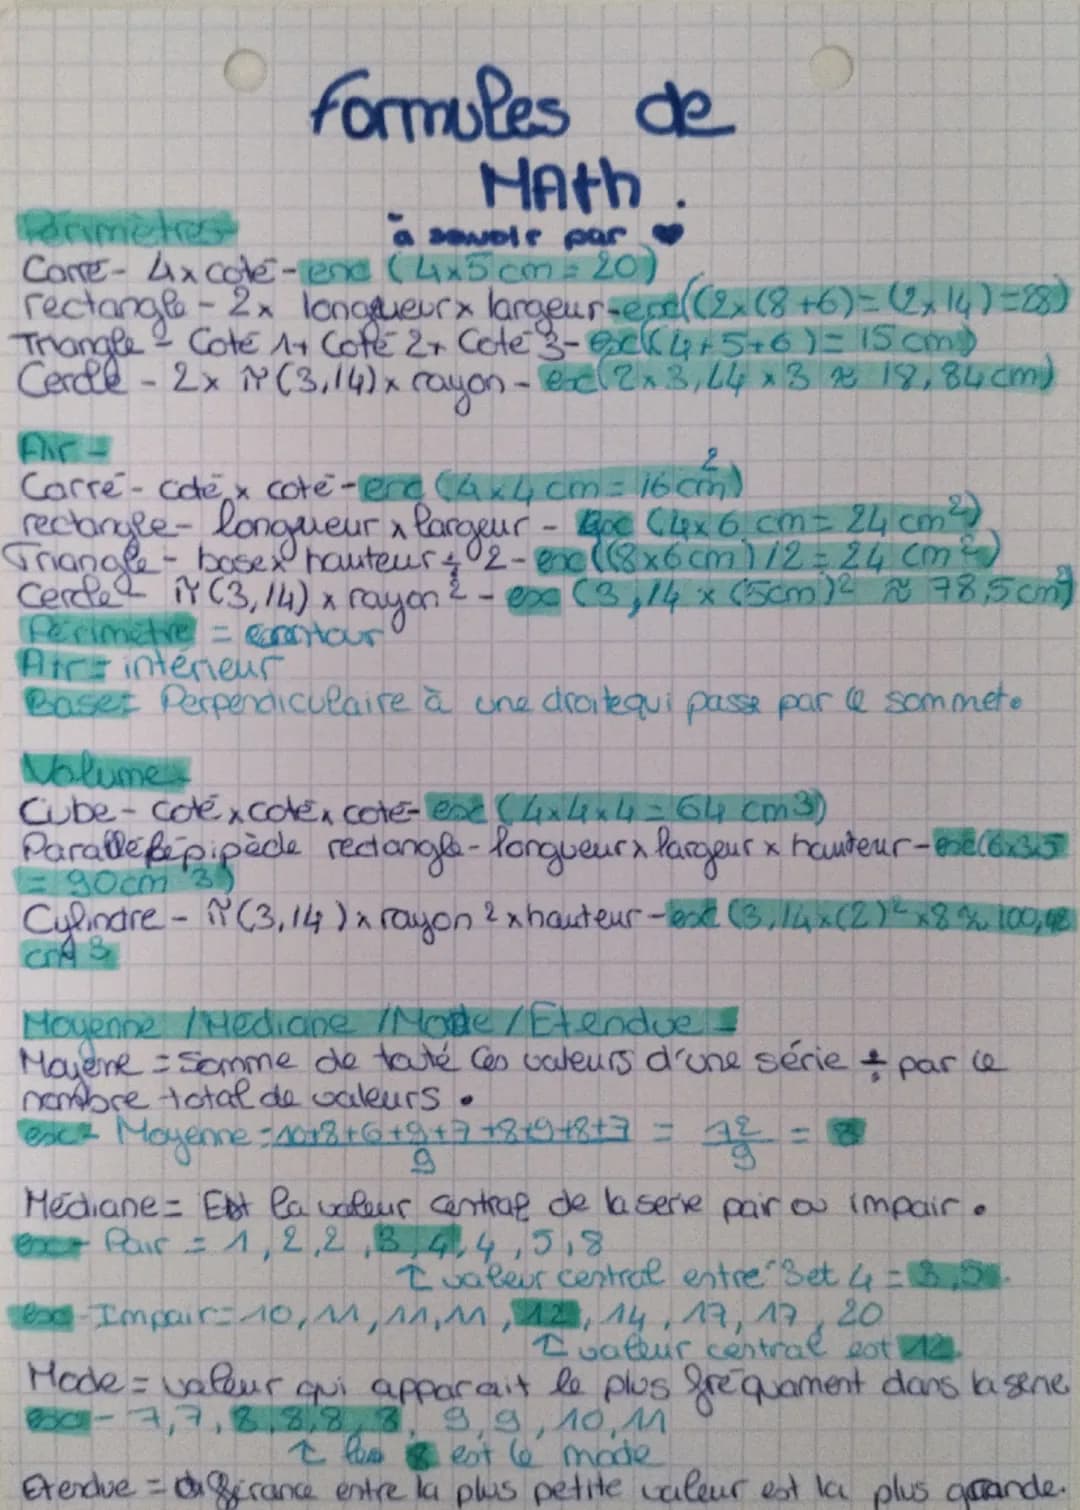 formules de
MAth.
à savoir par ♥
Périmètres
Carré - 4x coté - exe (4x5cm = 20)
rectangle - 2x longueur x largeur - exe((2x(8+6)=(2x14)=28)
Triangle - Coté 1+ Coté 2+ Coté 3 - exe((4+5+6)= 15cm)
Cercle - 2x π(3,14)x rayon - exe(2x3,14 x3 ≈ 18,84cm)
Air =
Carré - coté x coté - exe (4x4cm = 16cm²)
rectangle - longueur x largeur - exe (4x6cm = 24cm²)
Triangle - base x hauteur ÷ 2 - exe((8x6cm)/2 = 24 cm²)
Cercle - π(3,14) x rayon² - exe (3,14 x (5cm)² ≈ 78,5cm²)
Périmètre = contour
Air = intérieur
Base = Perpendiculaire à une droite qui passe par le sommet.
Volume
Cube - coté x coté x coté - exe (4x4x4 = 64 cm3)
Parallélépipède rectangle - longueur x largeur x hauteur - exe(6x3x5
= 90cm 3)
Cylindre - π(3,14) x rayon 2 x hauteur - exe (3,14x(2)² x8 ≈ 100,48
cm 3
Moyenne /Médiane /Mode /Etendue =
Moyene = Somme de touté les valeurs d'une série ÷ par le
nombre total de valeurs.
exe - Moyenne = 10+8+6+9+7+8+9+8+7 / 9 = 72 / 9 = 8
Médiane = Est la valeur central de la serie pair ou impair.
exe - Pair = 1,2,2,3,4,4,5,8
↑ valeur central entre 3 et 4 = 3,5.
exe - Impair = 10,11,11,11,12,14,17,17,20
↑ valeur central est 12.
Mode = valeur qui apparait le plus fréquament dans la serie
exe - 7,7,8,8,8,8, 9,9,10,11
↑ les 8 est le mode
Etendue = différance entre la plus petite valeur est la plus grande.